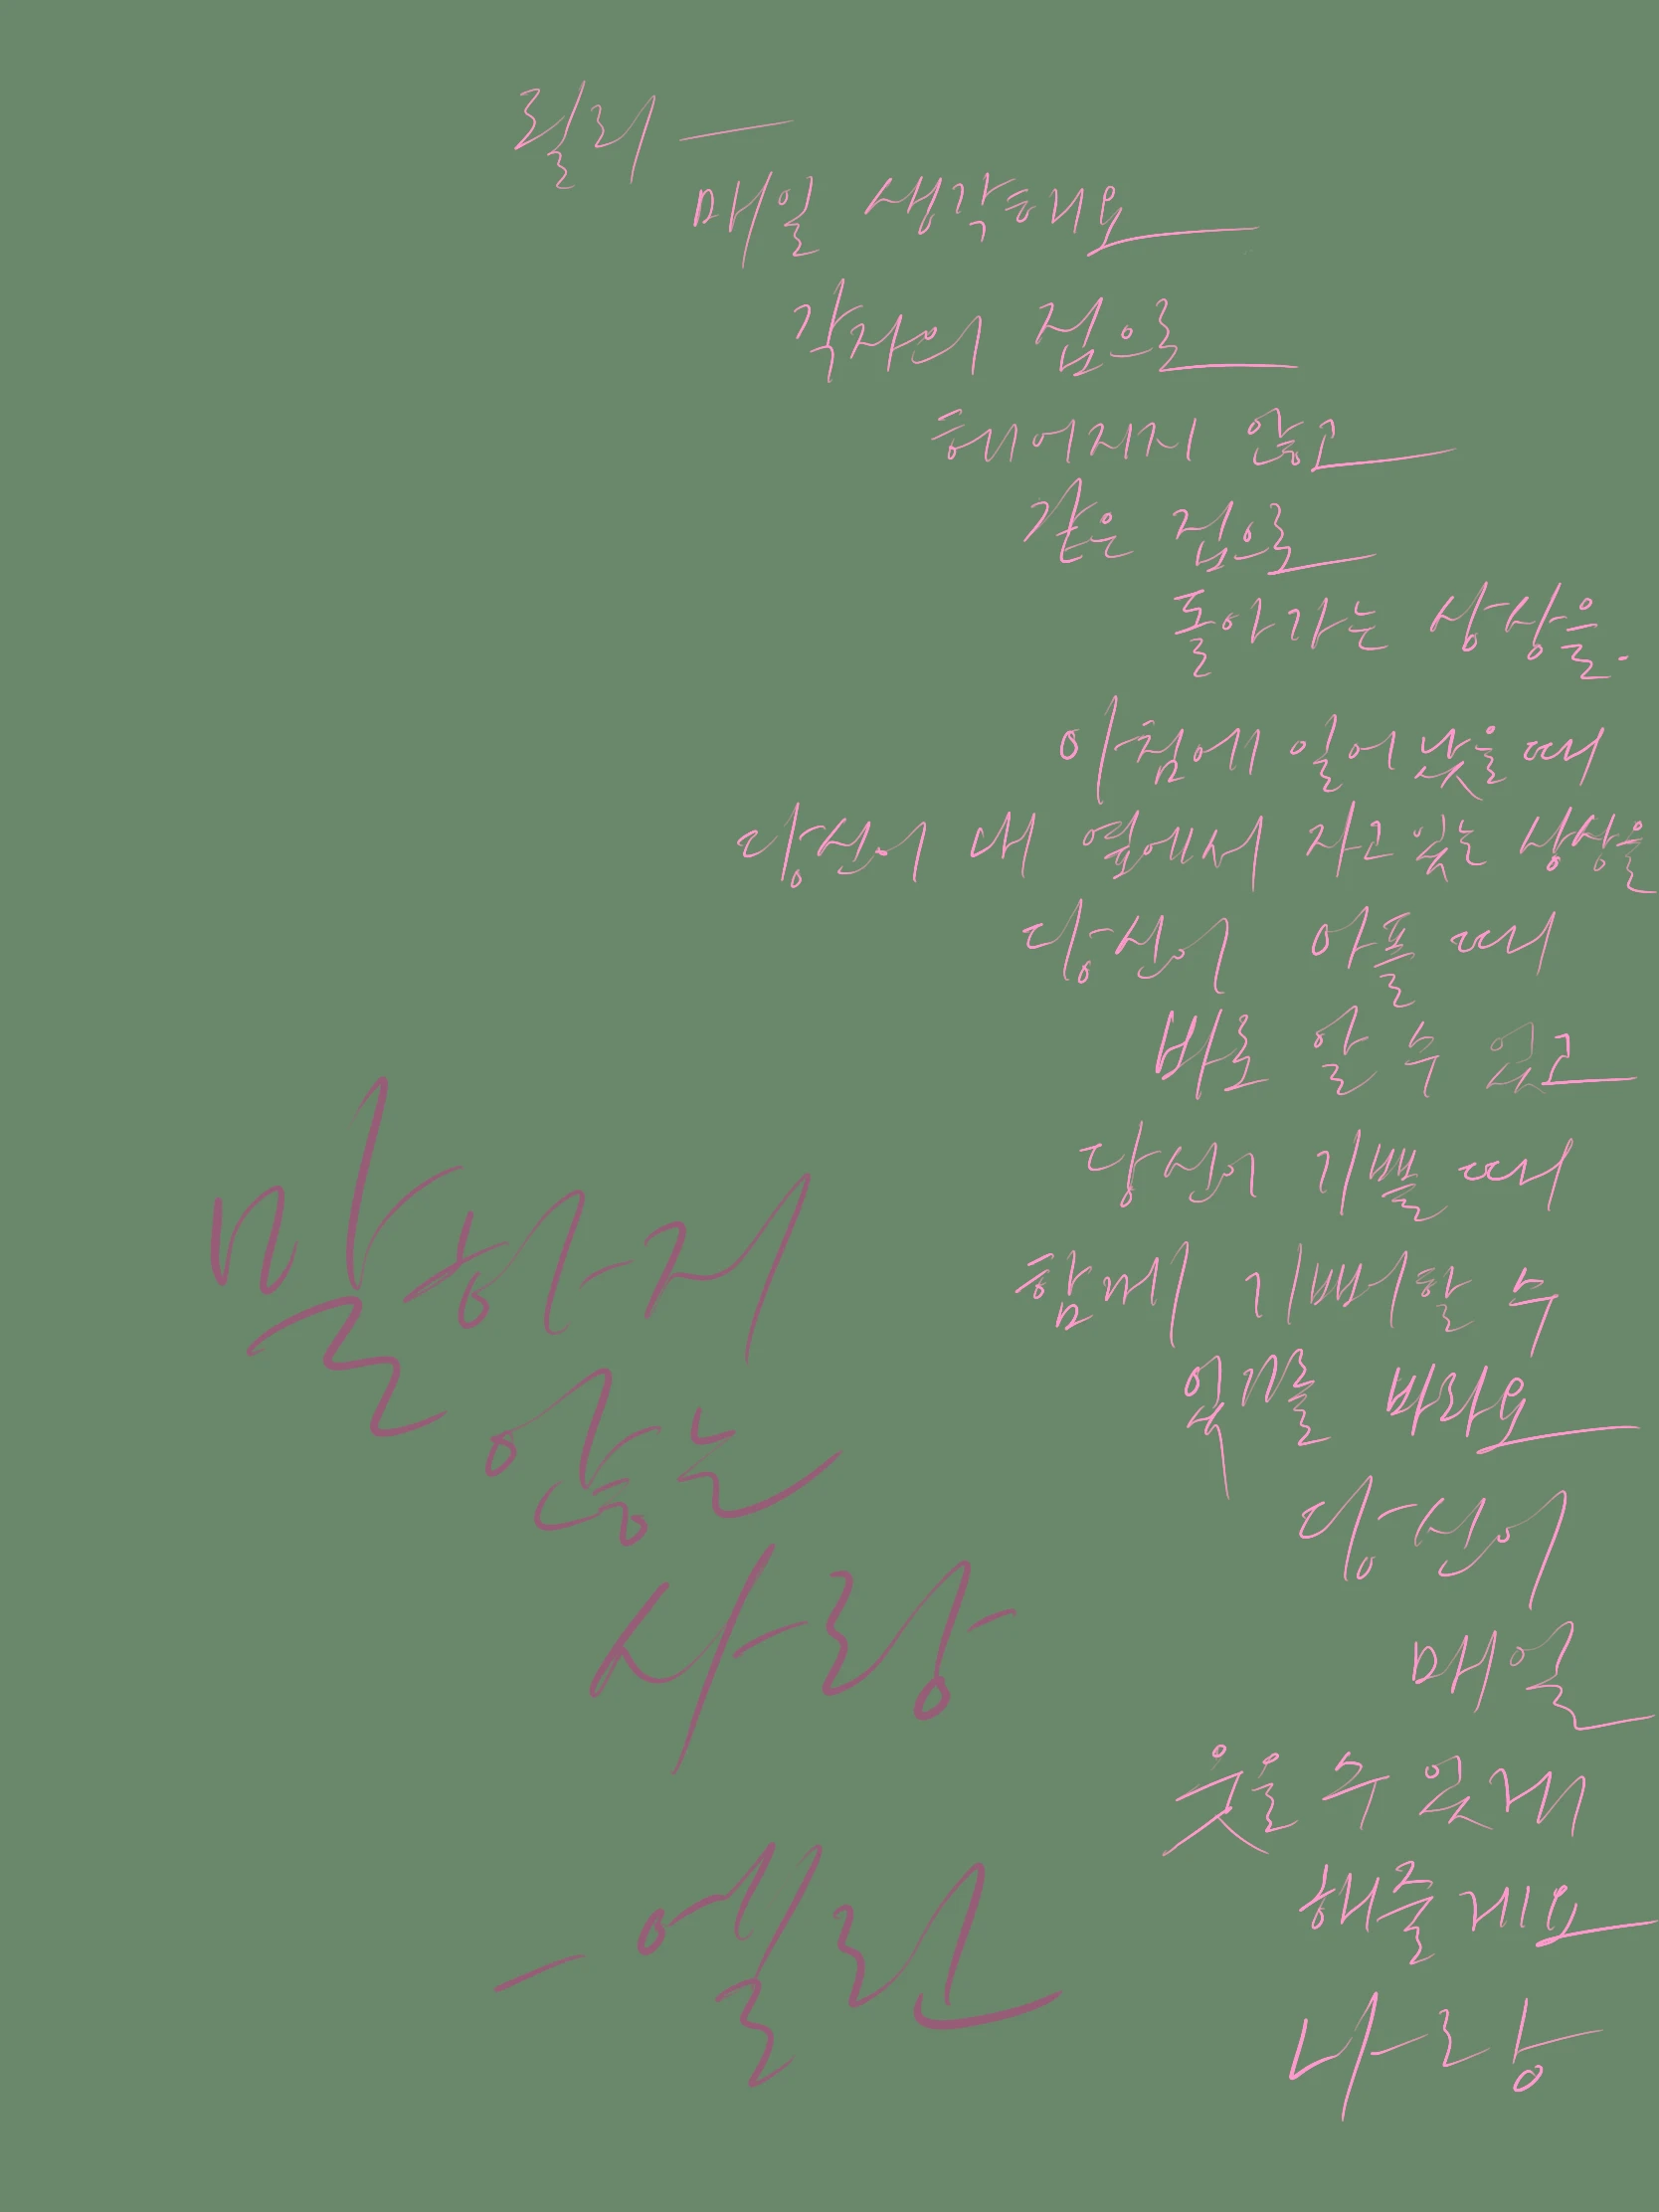 릴리 —
매일 생각해요
각자의 집으로
헤어지지 않고
같은 집으로
돌아가는 상상을.
아침에 일어났을때
당신이 내 옆에서 자고 있는 상상을
당신이 아플때
바로 알 수 있고
당신이 기쁠때
함께 기뻐할 수
있기를 바라요
당신이
매일
웃을 수 있게
해줄게요
나랑
말하지
않는
사랑